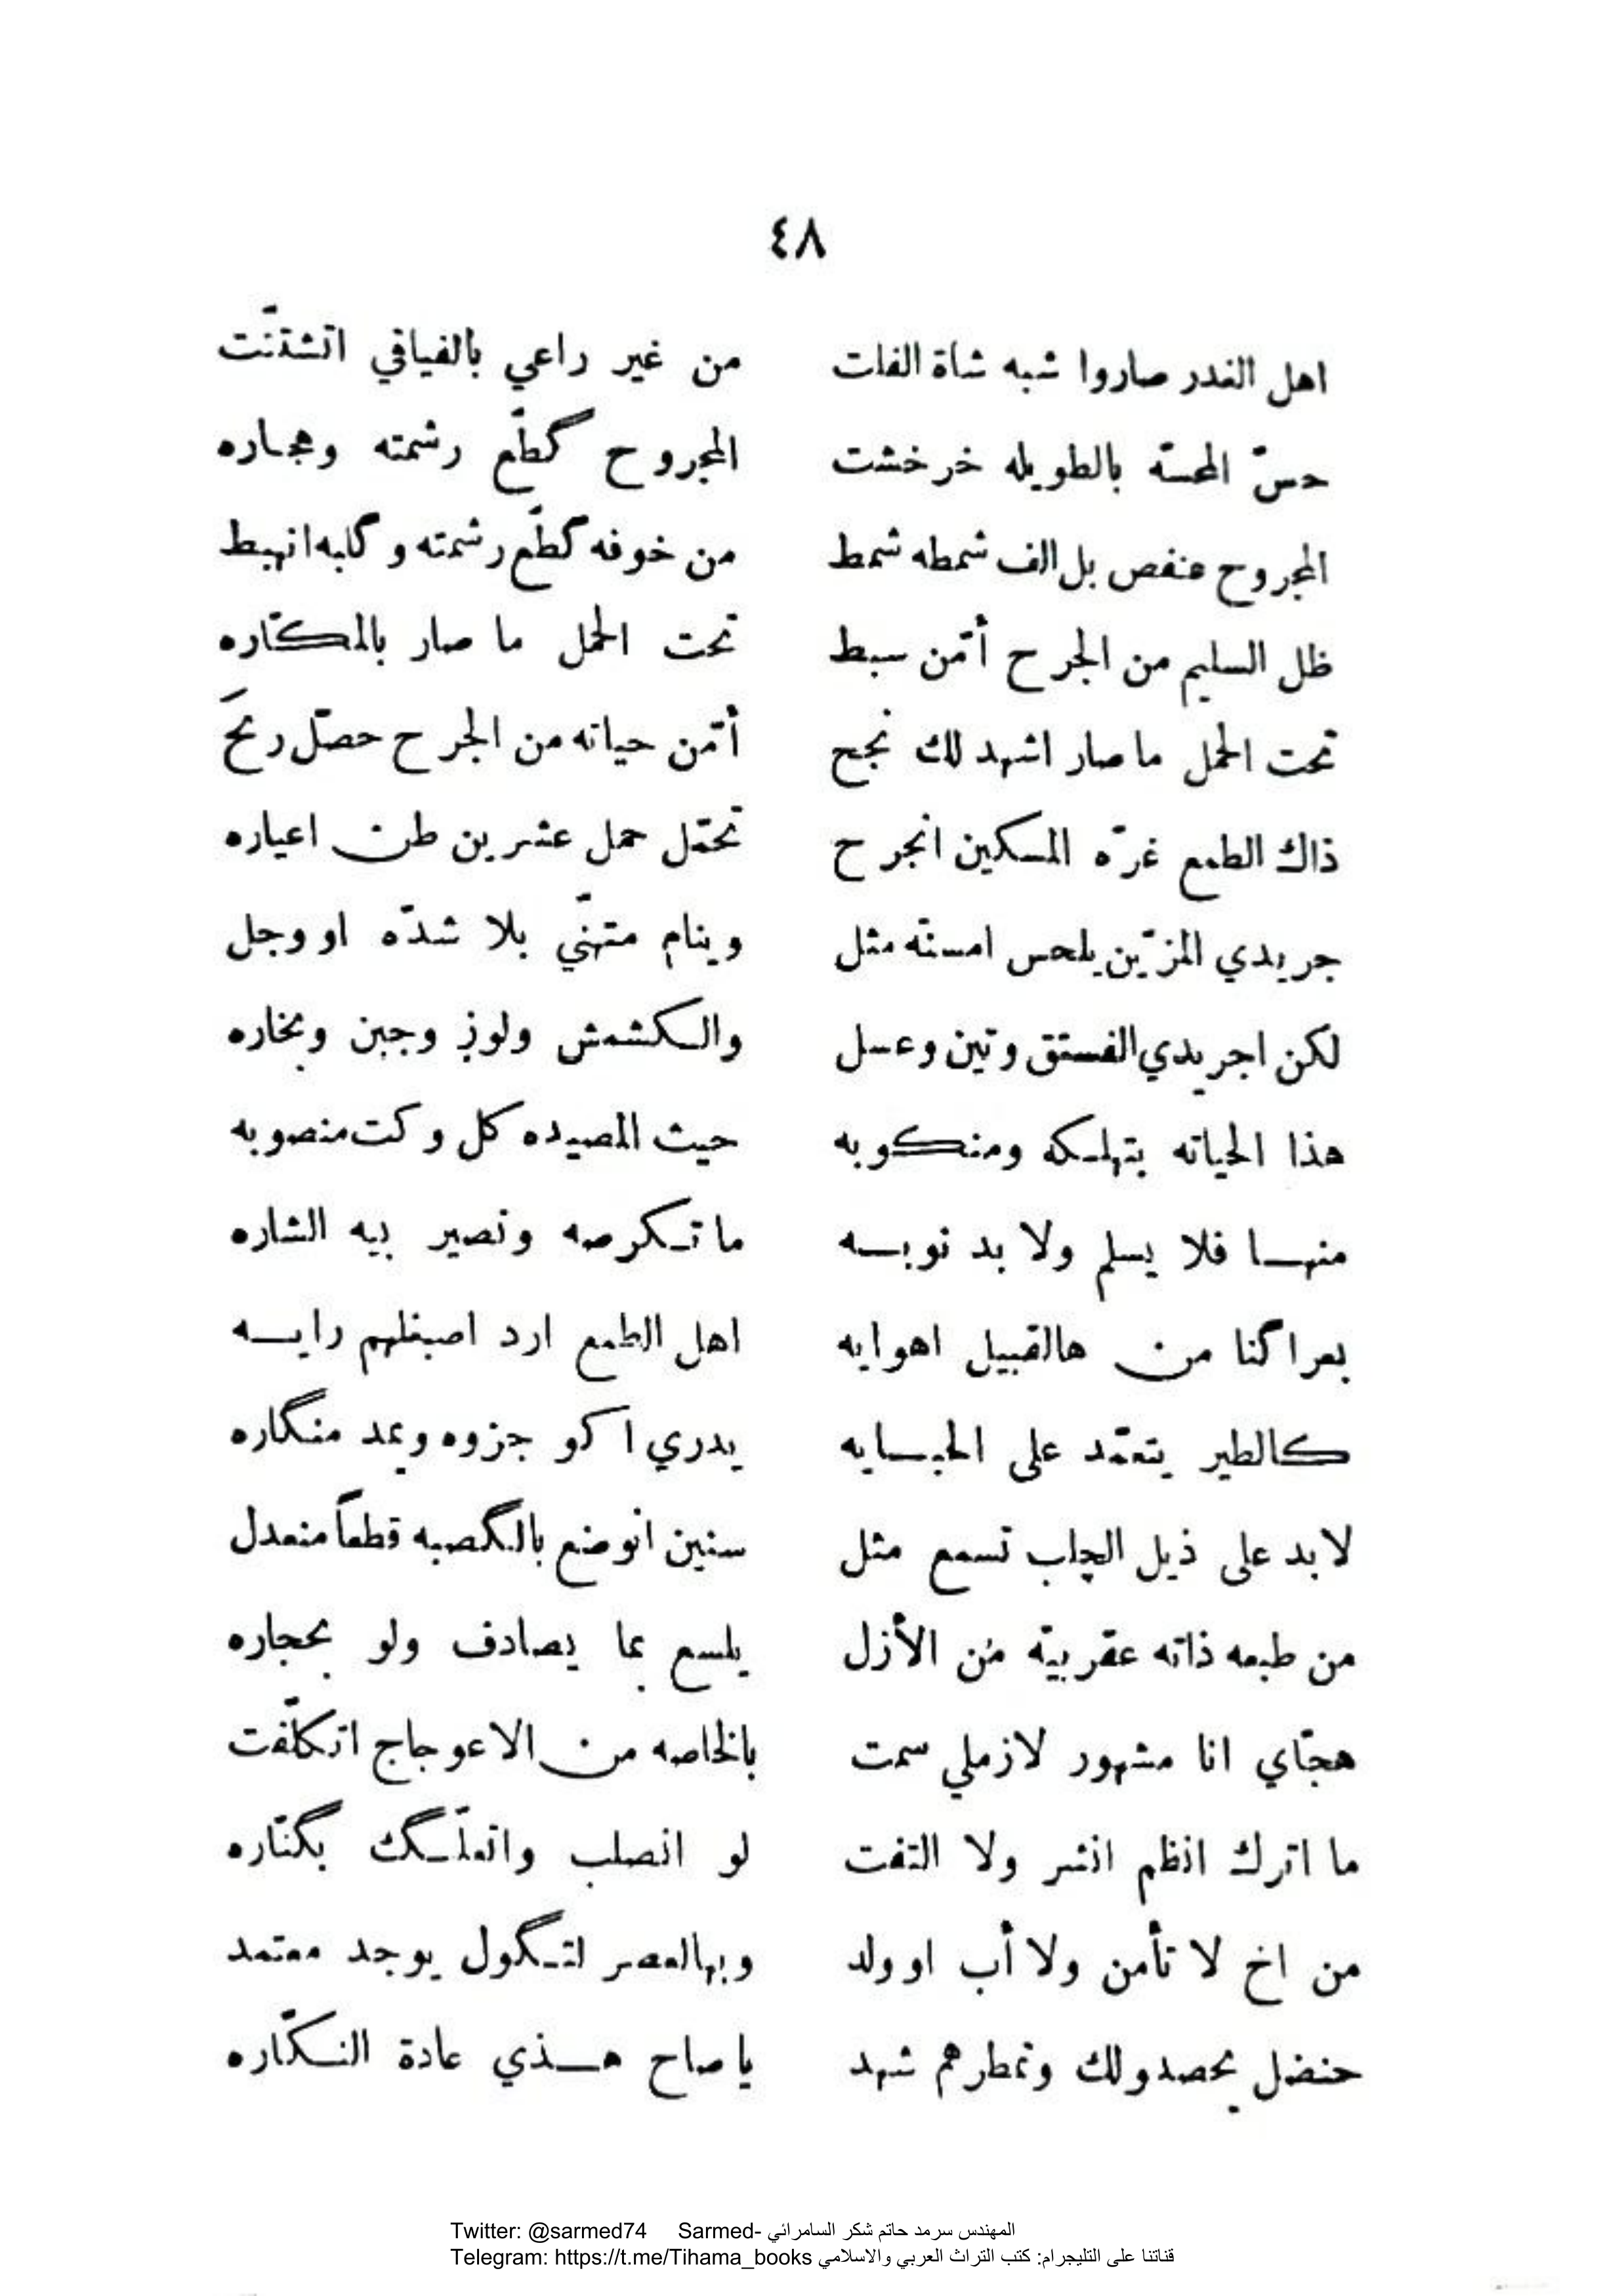 ٤٨
اهل الغدر صاروا شبه شاة الفات من غير راعي بالفيافي اتشتّنت
حسّ المحسّه بالطويله خرخشت المجروح گطّع رشمته وهجاره
المجروح عنفص بل الف شمطه شمط من خوفه گطّع رشمته وگلبه انهبط
ظل السليم من الجرح أمّن سبط تحت الحمل ما صار بالمكتّاره
تحت الحمل ما صار اشهد لك نجح أمّن حياته من الجرح حصّل ربحَ
ذاك الطمع غرّه المسكين انجرح تحمّل حمل عشرين طن اعياره
جريدي المزيّن يلحس امسنّه مثل وينام متهنّي بلا شدّه او وجل
لكن اجريدي الفستق وتين وعسل والكشمش ولوز وجبن وبخاره
هذا الحياته بتهلكه ومنكوبه حيث المصيده كل وكت منصوبه
منها فلا يسلم ولا بد نوبه ما تكرصه وتصير بيه الشاره
بعراگنا من هالقبيل اهوايه اهل الطمع ارد اصبغلهم رايه
كالطير يتعمّد على الحبايه يدري اكو جزوه ويمد منگاره
لا بد على ذيل الچلب تسمع مثل سنين انوضع بالگصبه قطعاً منعدل
من طبعه ذاته عقربيّه مُن الأزل يلسع بما يصادف ولو بحجاره
هجّاي انا مشهور لازملي سمت بالخاصه من الاعوجاج اتكلّفت
ما اترك انظم انثر ولا التفت لو انصلب واتعلّگ بگنّاره
من اخ لا تأمن ولا أب او ولد وبهالعصر لتگول يوجد معتمد
حنضل يحصدولك وتمطرهم شهد يا صاح هذي عادة النكّاره
Twitter: @sarmed74 Sarmed- المهندس سرمد حاتم شكر السامرائي
Telegram: https://t.me/Tihama_books قناتنا على التليجرام: كتب التراث العربي والاسلامي